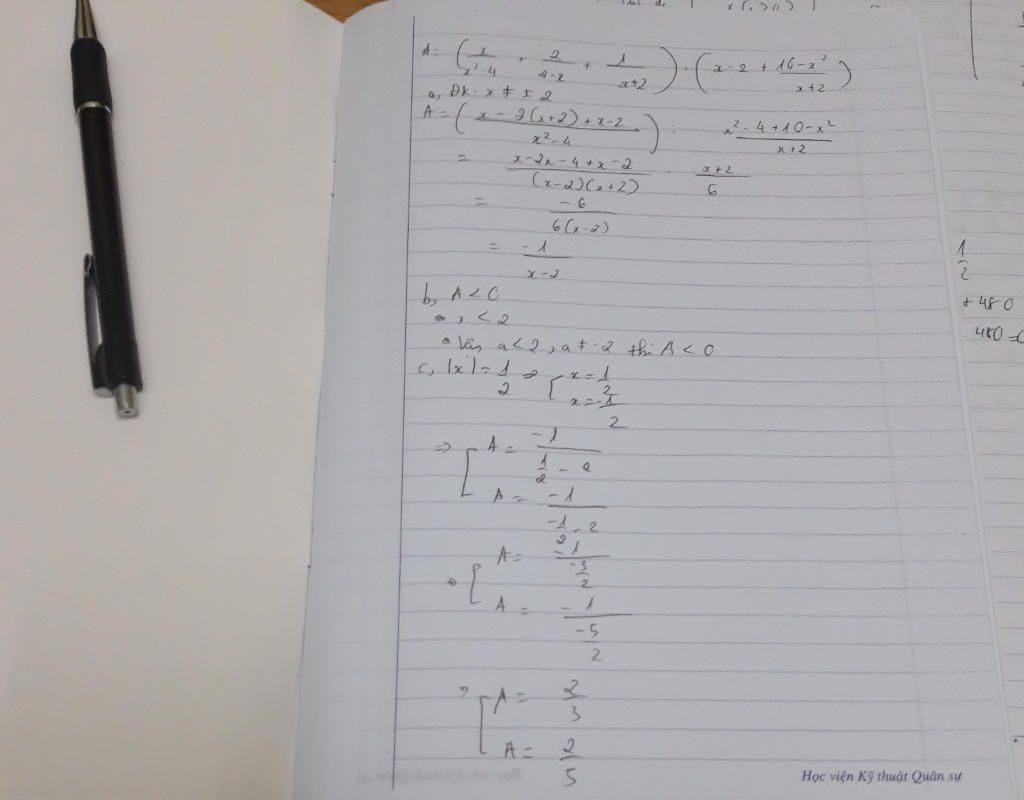 A = (x/x²-4 + 2/2-x + 1/x+2) : (x-2 + 16-x²/x+2)
a, ĐK: x ≠ ± 2
A = (x - 2(x+2) + x-2/x²-4) : x²-4+10-x²/x+2
= x-2x-4+x-2/(x-2)(x+2) . x+2/6
= -6/6(x-2)
= -1/x-2
b, A < 0
x < 2
a < 2, a ≠ -2 thì A < 0
c, |x| = 1/2 => [ x = 1/2
x = -1/2
=> [ A = -1/1/2 - 2
A = -1/-1/2 - 2
=> [ A = -1/-3/2
A = -1/-5/2
=> [ A = 2/3
A = 2/5
Học viện Kỹ thuật Quân sự
1/2
+ 480
480 = 0